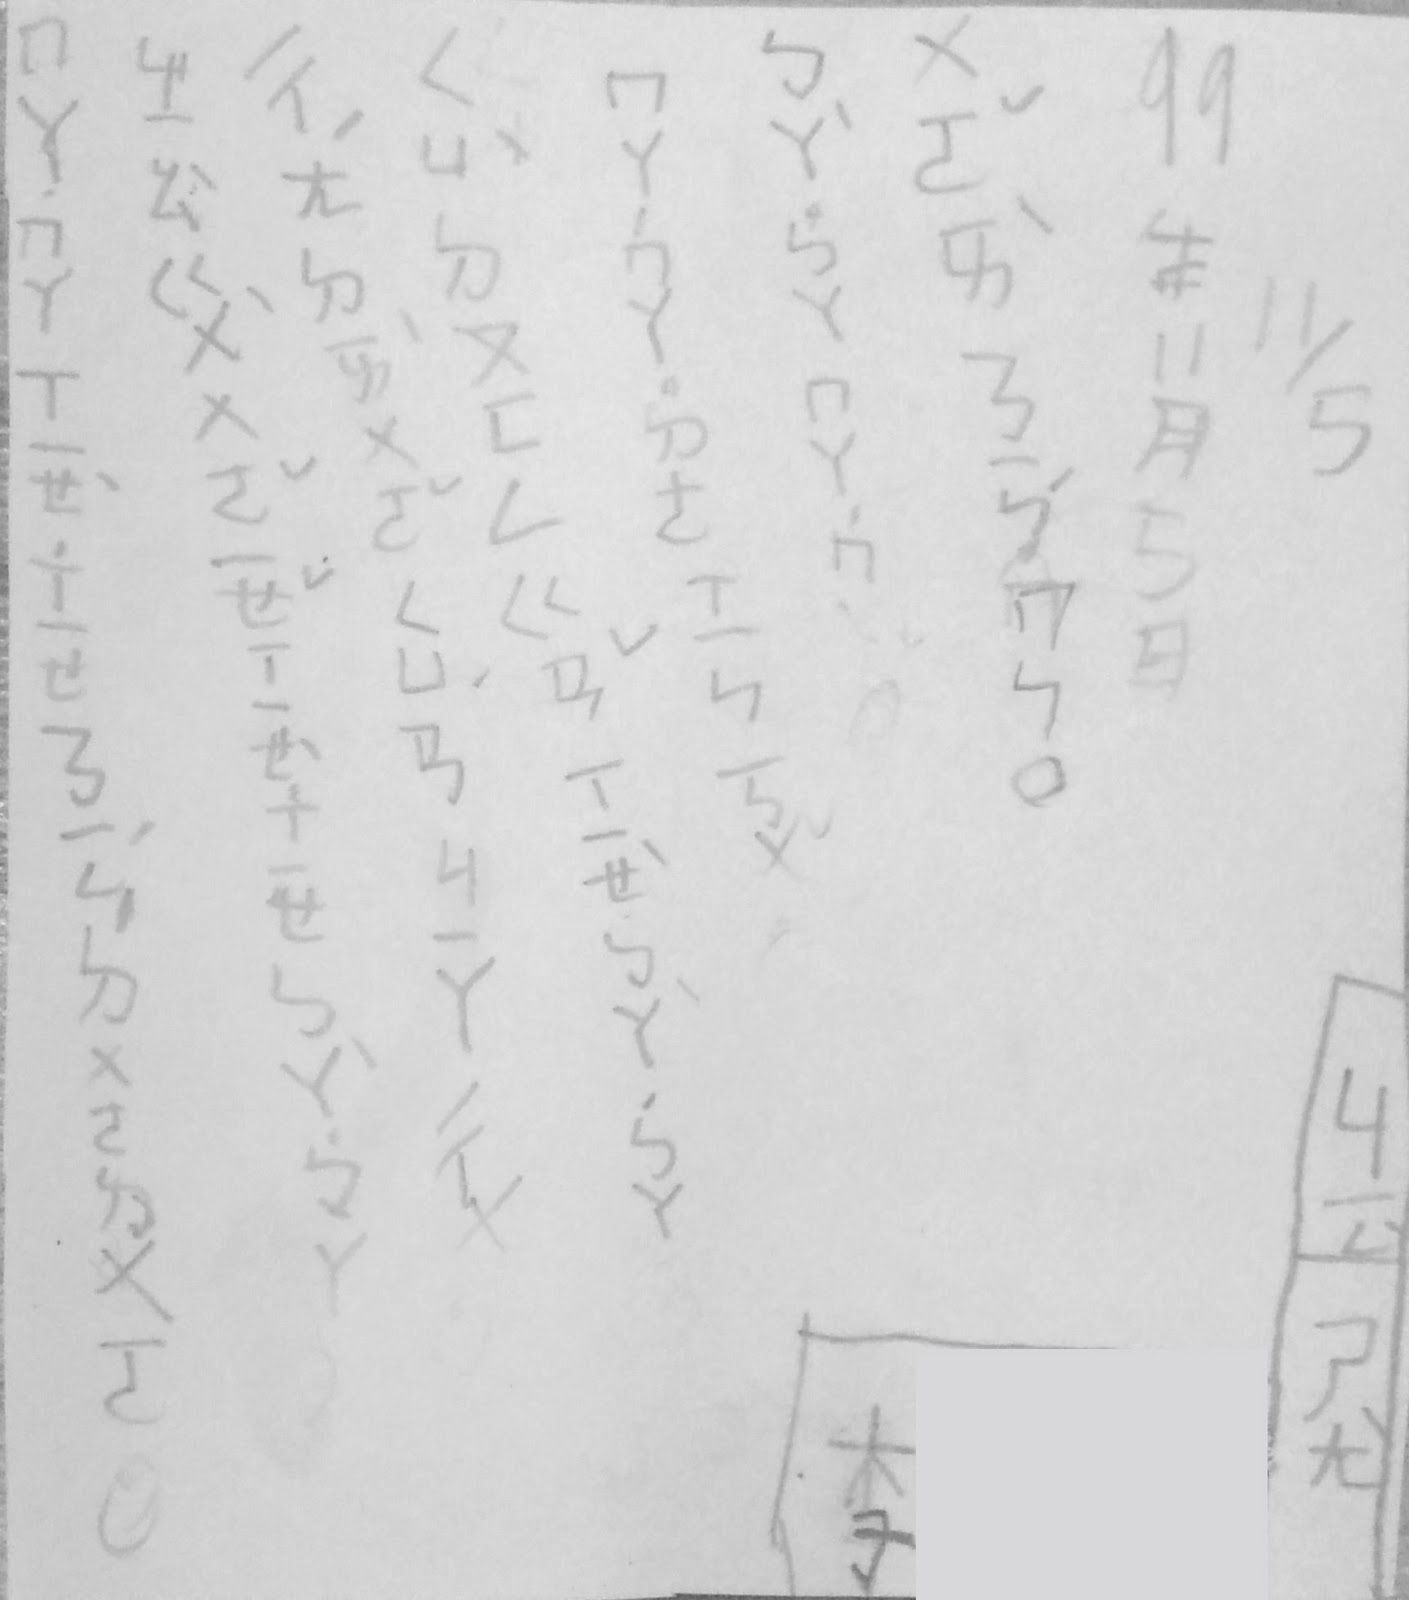 11/5
99年11月5日
ㄨㄛˇㄞˋㄋㄧㄣˊㄇㄣ。
ㄅㄚˋ˙ㄅㄚㄇㄚ˙ㄇ
ㄇㄚ˙ㄇㄚ˙ㄉㄜㄒㄧㄣㄎㄨˇ
ㄑㄩˋㄉㄡㄈㄥㄍㄢˇㄒㄧㄝˋㄅㄚˋ˙ㄅㄚ
ㄔㄤˊㄉㄞˋㄨㄛˇㄑㄩㄢˊㄐㄧㄚㄔㄨ
ㄓㄠˋㄍㄨˋㄨㄛˇㄧㄝˇㄒㄧㄝˋ˙ㄒㄧㄝㄅㄚˋ˙ㄅㄚ
ㄇㄚ˙ㄇㄚㄒㄧㄝˋ˙ㄒㄧㄝㄋㄧㄣˊㄉㄨㄛㄉㄨㄛ。
李
ㄐㄧㄥㄕㄤˋ